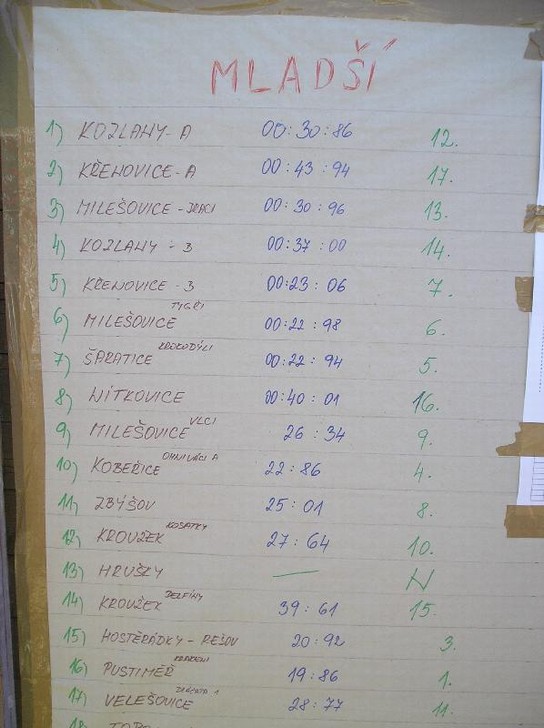 MLADŠÍ
1) KOZLANY-A 00:30:86 12.
2) KŘENOVICE-A 00:43:94 17.
3) MILEŠOVICE-DRACI 00:30:96 13.
4) KOZLANY-B 00:37:00 14.
5) KŘENOVICE-B 00:23:06 7.
6) MILEŠOVICE TYGŘI 00:22:98 6.
7) ŠARATICE KROKODÝLI 00:22:94 5.
8) NÍTKOVICE 00:40:01 16.
9) MILEŠOVICE VLCI 26:34 9.
10) KOBEŘICE OHNIVÁCI A 22:86 4.
11) ZBÝŠOV 25:01 8.
12) KROUŽEK KOSATKY 27:64 10.
13) HRUŠKY — N
14) KROUŽEK DELFÍNY 39:61 15.
15) HOSTĚRÁDKY-REŠOV 20:92 3.
16) PUSTIMĚŘ 19:86 1.
17) VELEŠOVICE 28:77 11.
18)